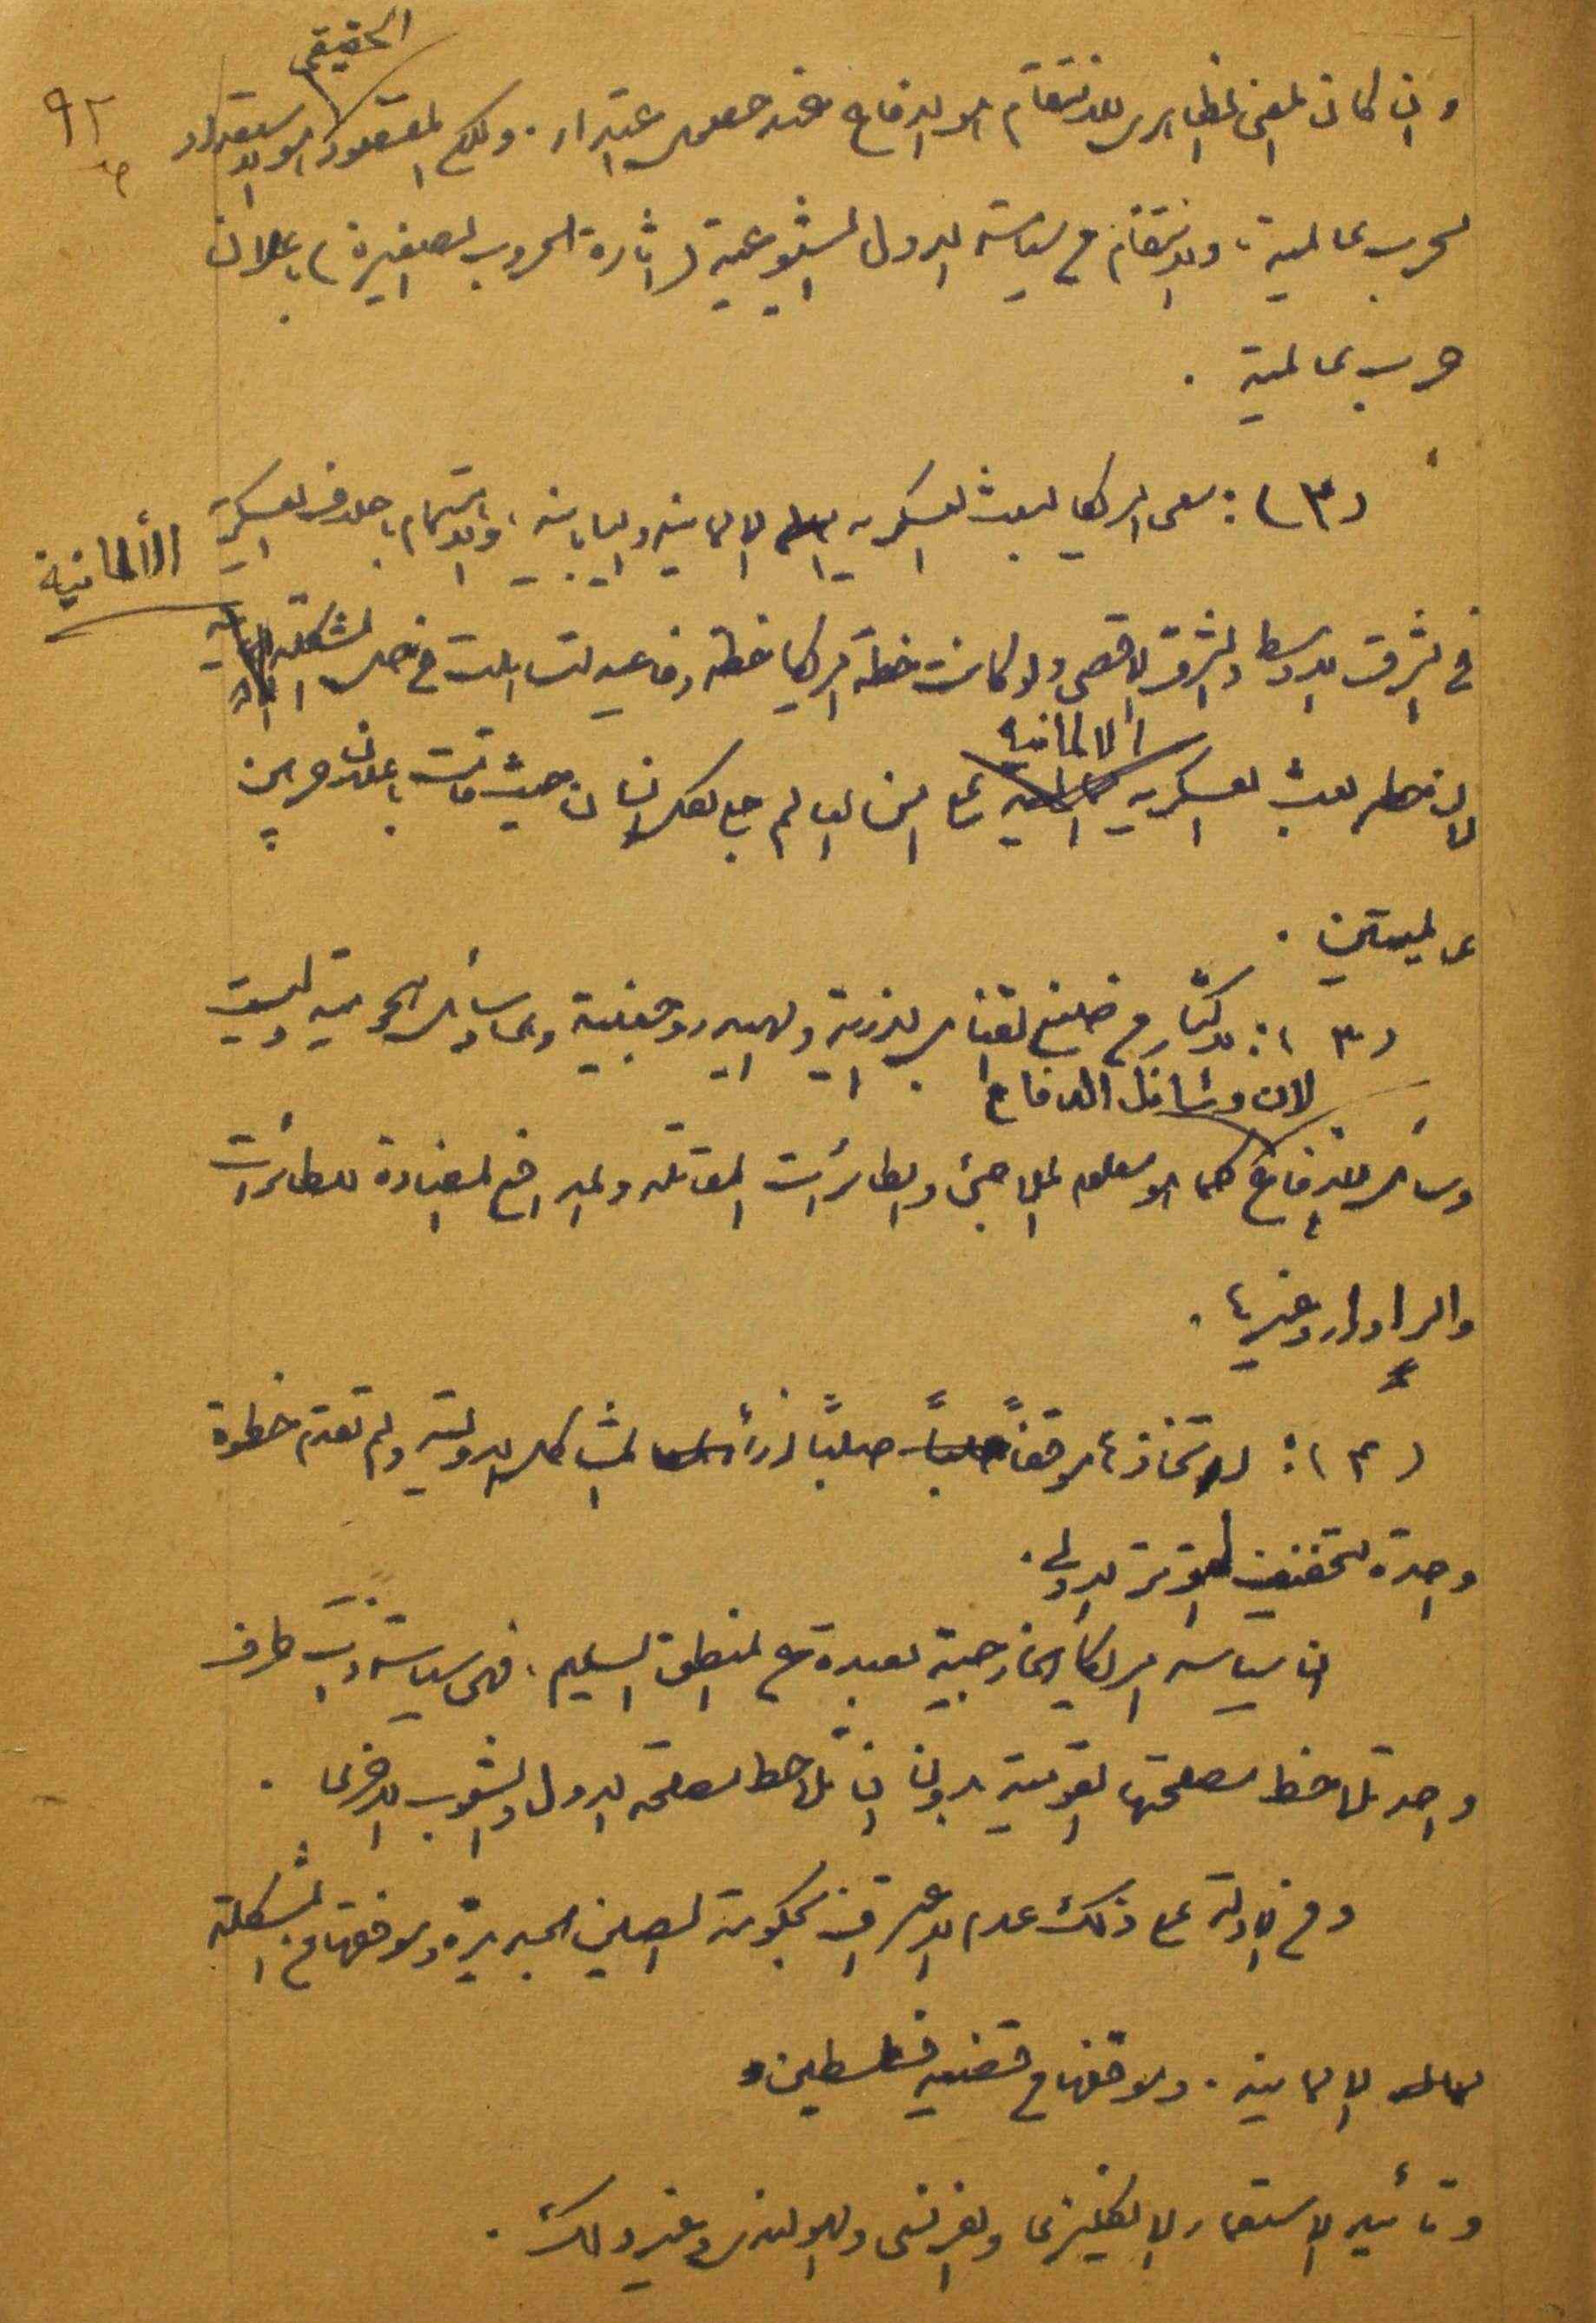 ٩٢
الحقيقي
وان كان المعنى الظاهري للانتقام هو الدفاع عند حصول اعتداء. ولكن المقصود هو الاستعداد
لحرب عالمية، والانتقام من سياسة الدول الشيوعية (اثارة الحروب الصغيرة) باعلان
حرب عالمية.
(٣): سعي امريكا لبعث العسكرية الالمانية واليابانية، والاهتمام باحلاف العسكرية
الألمانية
في الشرق الاوسط والشرق الاقصى ولو كانت خطة امريكا خطة دفاعية لتساهلت في حل المشكلة
الالمانية
لان خطر بعث العسكرية على امن العالم جلي لكل انسان حيث قامت باعلان حربين
عالميتين.
(٣): تذكّار من صنع القنابل الذرية والهيدروجينية وسائل هجومية وليست
لان وسائل الدفاع
وسائل للدفاع كما هو معلوم الملاجئ والطائرات المقاتلة والمدافع المضادة للطائرات
والرادار وغيرها.
(٤): لاتخاذها موقفاً صلباً ازاء المشاكل الدولية ولم تقدم خطوة
واحدة لتخفيف التوتر الدولي.
ان سياسة امريكا الخارجية بعيدة عن المنطق السليم. فهي سياسة ذات طرف
واحد تلاحظ مصلحتها القومية بدون ان تلاحظ مصلحة الدول والشعوب الاخرى.
ومن الادلة على ذلك عدم الاعتراف بحكومة الصين الجديدة وموقفها من المشكلة
الالمانية. وموقفها من قضية فلسطين
وتأييد الاستعمار الانكليزي والفرنسي والهولندي وغير ذلك.